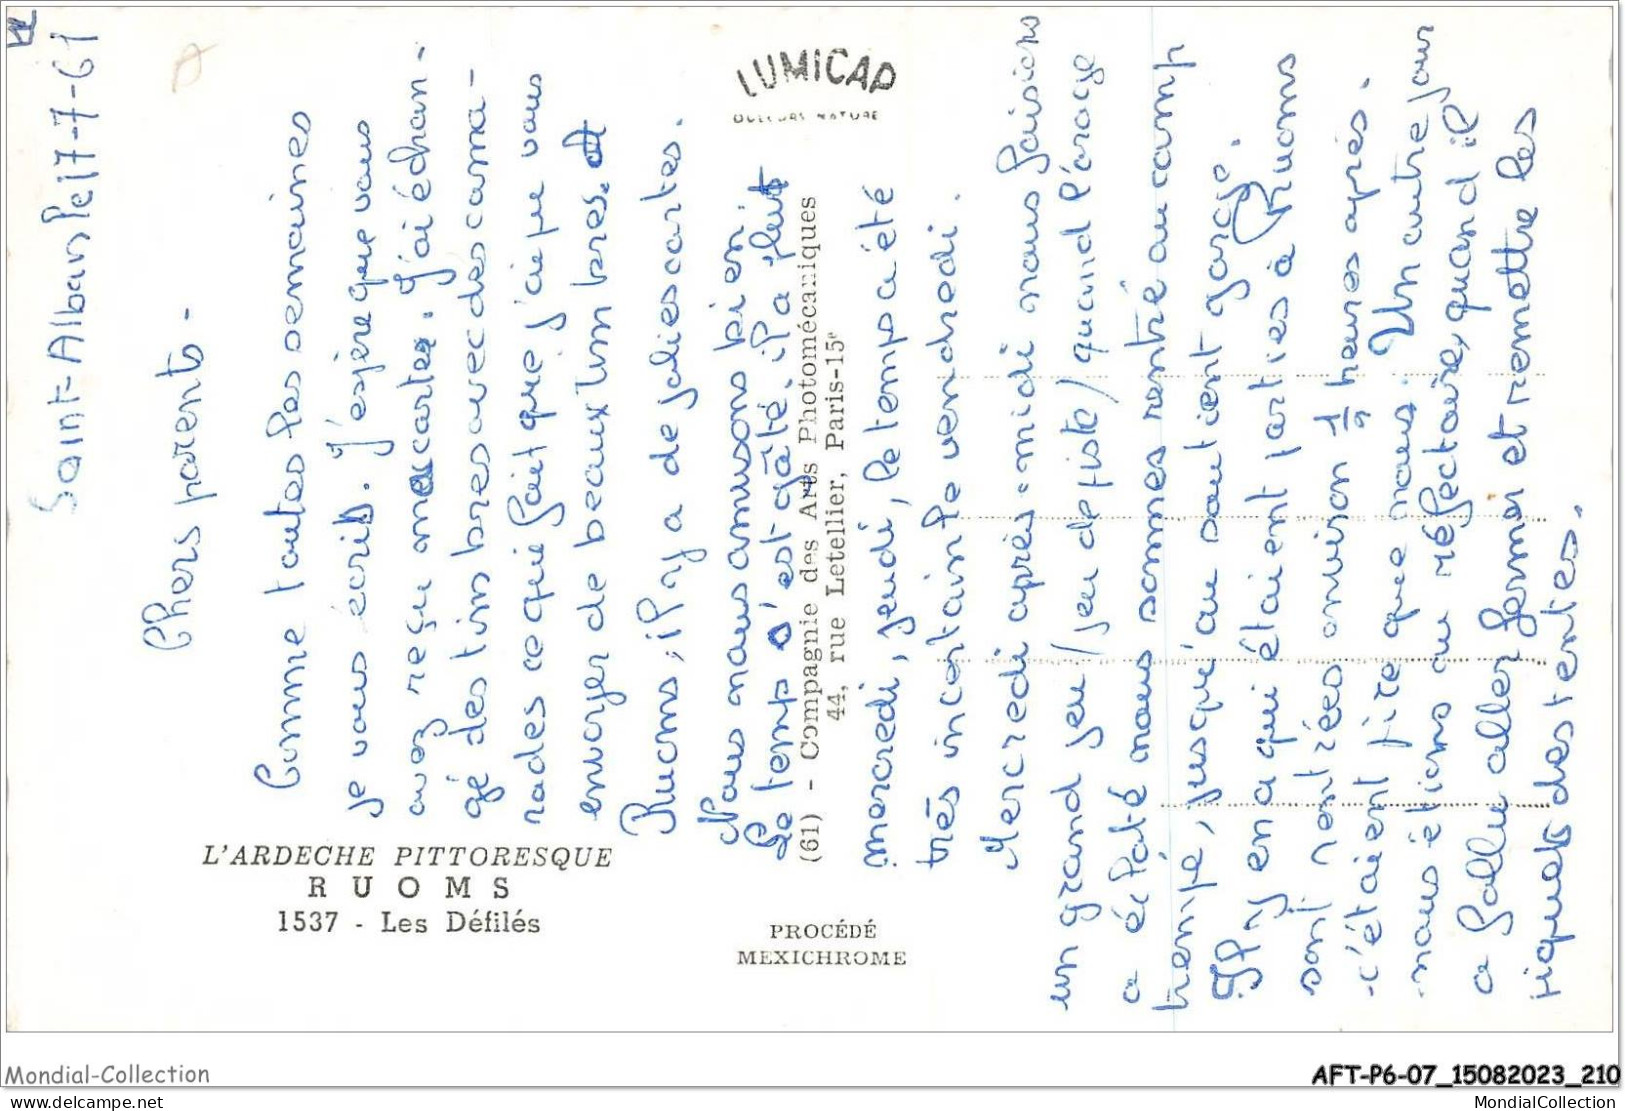 Saint-Alban le 17-7-61
Chers parents -
Comme toutes les semaines
je vous écris. J'espère que vous
avez reçu mes cartes. J'ai échan-
gé des timbres avec des cama-
rades ce qui fait que j'ai pu vous
envoyer de beaux timbres. et
Ruoms, il y a de jolies cartes.
Nous nous amusons bien.
Le temps s'est gâté, il a plut
mercredi, jeudi, le temps a été
très incertain le vendredi.
Mercredi après-midi nous faisions
un grand jeu / jeu de piste / quand l'orage
a éclaté nous sommes rentré au camp
trempé, jusqu'au soutient gorge.
Il y en a qui étaient parties à Ruoms
sont rentrées environ 1 heures après.
c'étaient pire que nous. Un autre jour
nous étions au réfectoire, quand il
a fallu aller fermer et remettre les
piquets des tentes.
L'ARDECHE PITTORESQUE
RUOMS
1537 - Les Défilés
LUMICAP
COULEURS NATURE
(61) - Compagnie des Arts Photomécaniques
44, rue Letellier, Paris-15e
PROCÉDÉ
MEXICHROME
Mondial-Collection
AFT-P6-07_15082023_210
delcampe.net
MondialCollection